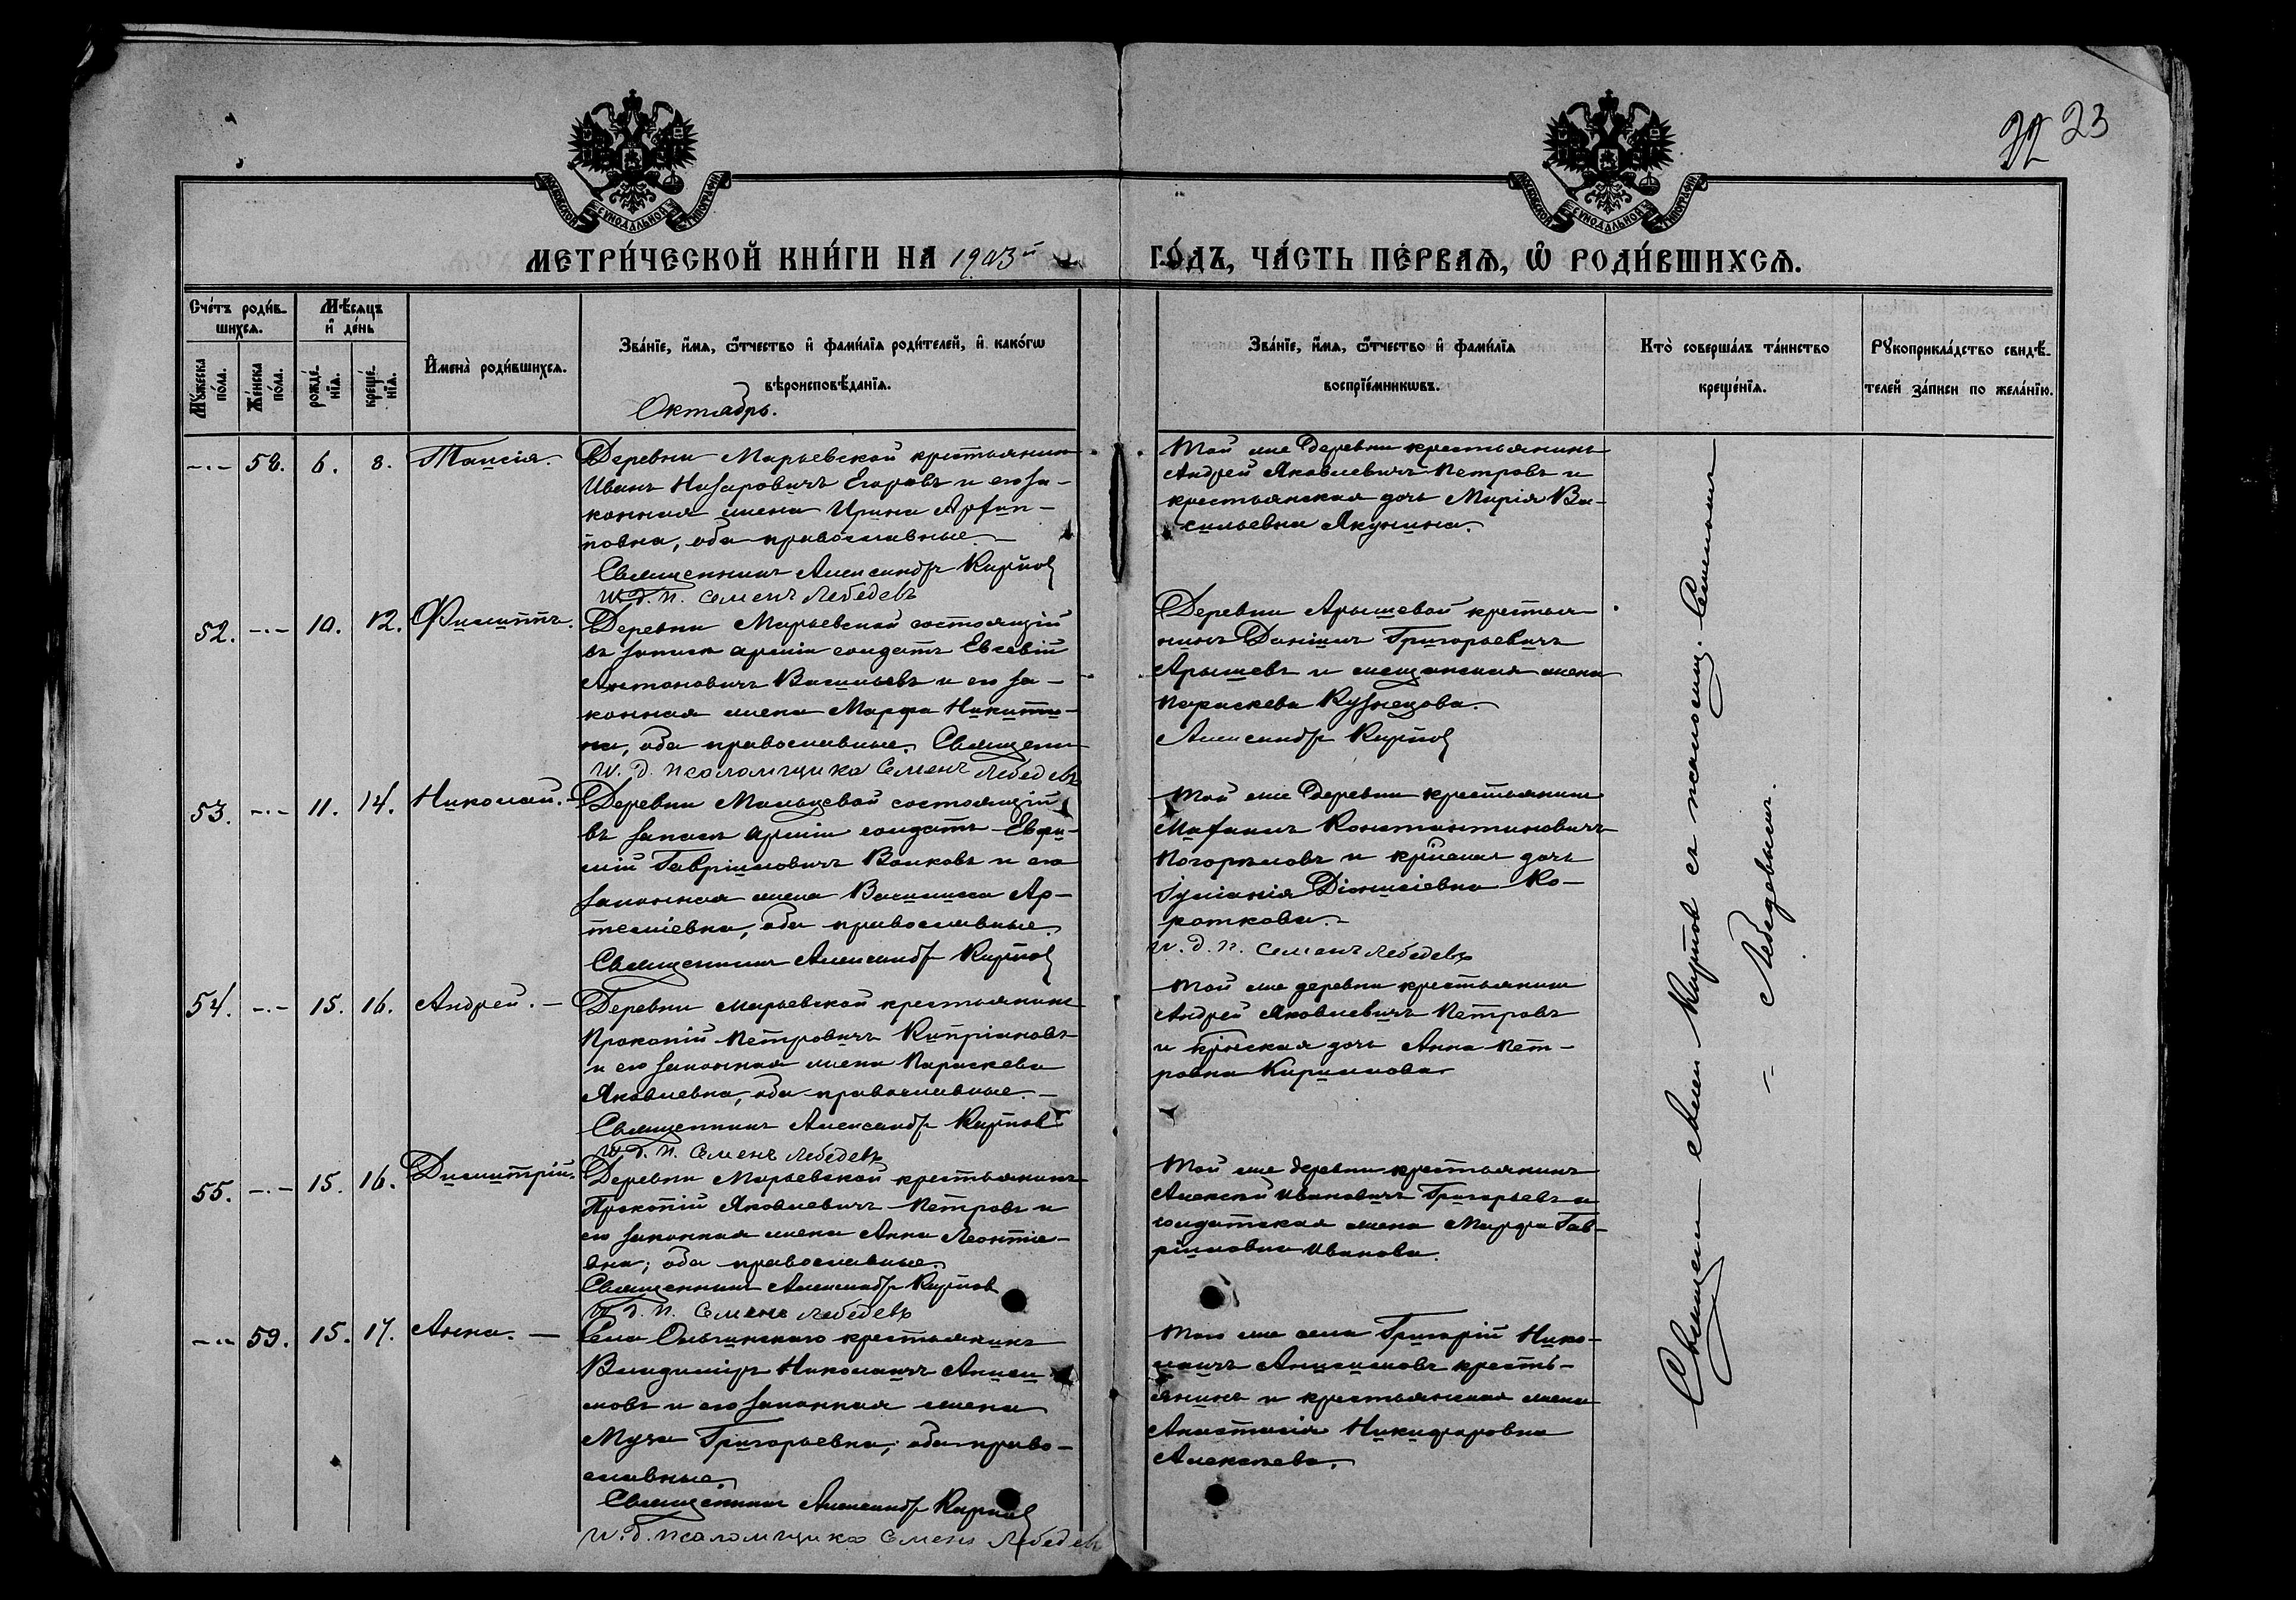 23
МОСКОВСКОЙ СУНОДАЛЬНОЙ ТИПОГРАФІИ
МОСКОВСКОЙ СУНОДАЛЬНОЙ ТИПОГРАФІИ
МЕТРИ́ЧЕСКОЙ КНИ́ГИ НА 1903й
ГО́ДЪ, ЧА́СТЬ ПЕ́РВАѦ, Ѡ҆ РОДИ́ВШИХСѦ.
Сче́тъ роди́в-
шихсѧ.
Мꙋ́жеска по́ла.
Же́нска по́ла.
Мѣ́сѧцъ
и҆ де́нь
рожде́-нїѧ.
креще́-нїѧ.
И҆мена̀ роди́вшихсѧ.
Зва́нїе, и҆́мѧ, ѻ҆́тчество и҆ фами́лїѧ роди́телей, и҆ како́гѡ
вѣроисповѣ́данїѧ.
Октябрь.
Зва́нїе, и҆́мѧ, ѻ҆́тчество и҆ фами́лїѧ
воспрїе́мникѡвъ.
Кто̀ соверша́лъ та́инство
креще́нїѧ.
Рꙋкоприкла́дство свидѣ́-
телей за́писи по жела́нїю.
-.- 58. 6. 8. Таисія.
Деревни Марьевской крестьянинъ
Иванъ Назаровичъ Егоровъ и его за-
конная жена Ирина
повна, оба православные.
Священникъ Александръ Карпов
и. д. п. Семенъ Лебедевъ
Той же деревни крестьянинъ
Андрей Яковлевичъ Петровъ и
крестьянская дочь Марія Ва-
сильевна Якунина.
52. -.- 10. 12. Филиппъ.
Деревни Марьевской состоящій
въ запасѣ арміи солдатъ Евсевій
Антоновичъ Васильевъ и его за-
конная жена Марфа Никити-
на, оба православные. Священн
и. д. псаломщика Семенъ Лебедевъ
Деревни Арышевой крестья-
нинъ Даніилъ Григорьевичъ
Арышевъ и мещанская жена
Параскева Кузнецова.
Александръ Карпов
53. -.- 11. 14. Николай.
Деревни Мальцевой состоящій
въ запасѣ арміи солдатъ Евфи-
мій Гавріиловичъ Волковъ и его
законная жена Василисса Ар-
теміевна, оба православные.
Священникъ Александръ Карпов
Той же деревни крестьянинъ
Константиновичъ
Погорѣловъ и дочь
Іуліанія Діонисіевна Ко-
роткова.
и. д. п. Семенъ Лебедевъ
54. -.- 15. 16. Андрей. -
Деревни Марьевской крестьянинъ
Прокопій Петровичъ Кипріяновъ
и его законная жена Параскева
Яковлевна, оба православные.
Священникъ Александръ Карпов
и. д. п. Семенъ Лебедевъ
Той же деревни крестьянинъ
Андрей Яковлевичъ Петровъ
и дочь Анна Пет-
ровна Кириллова
55. -.- 15. 16. Димитрій.
Деревни Марьевской крестьянинъ
Прокопій Яковлевичъ Петровъ и
его законная жена Анна Леонтіе-
вна; оба православные.
Священникъ Александръ Карпов
и. д. п. Семенъ Лебедевъ
Той же деревни крестьянинъ
Алексѣй Ивановичъ Григорьевъ и
солдатская жена Марфа Гав-
ріиловна Иванова.
-.- 59. 15. 17. Анна. -
Села Ольгинскаго крестьянинъ
Владиміръ Николаичъ Аниси
мовъ и его законная жена
Муза Григорьевна; оба право-
славные.
Священникъ Александръ Карпов
и. д. псаломщика Семенъ Лебедевъ
Того же села Григорій Нико-
лаичъ Анисимовъ кресть-
янинъ и крестьянская жена
Анастасія Никифоровна
Алексѣева.
Священн Алек Карпов съ псаломщ. Семеномъ
Лебедевымъ.